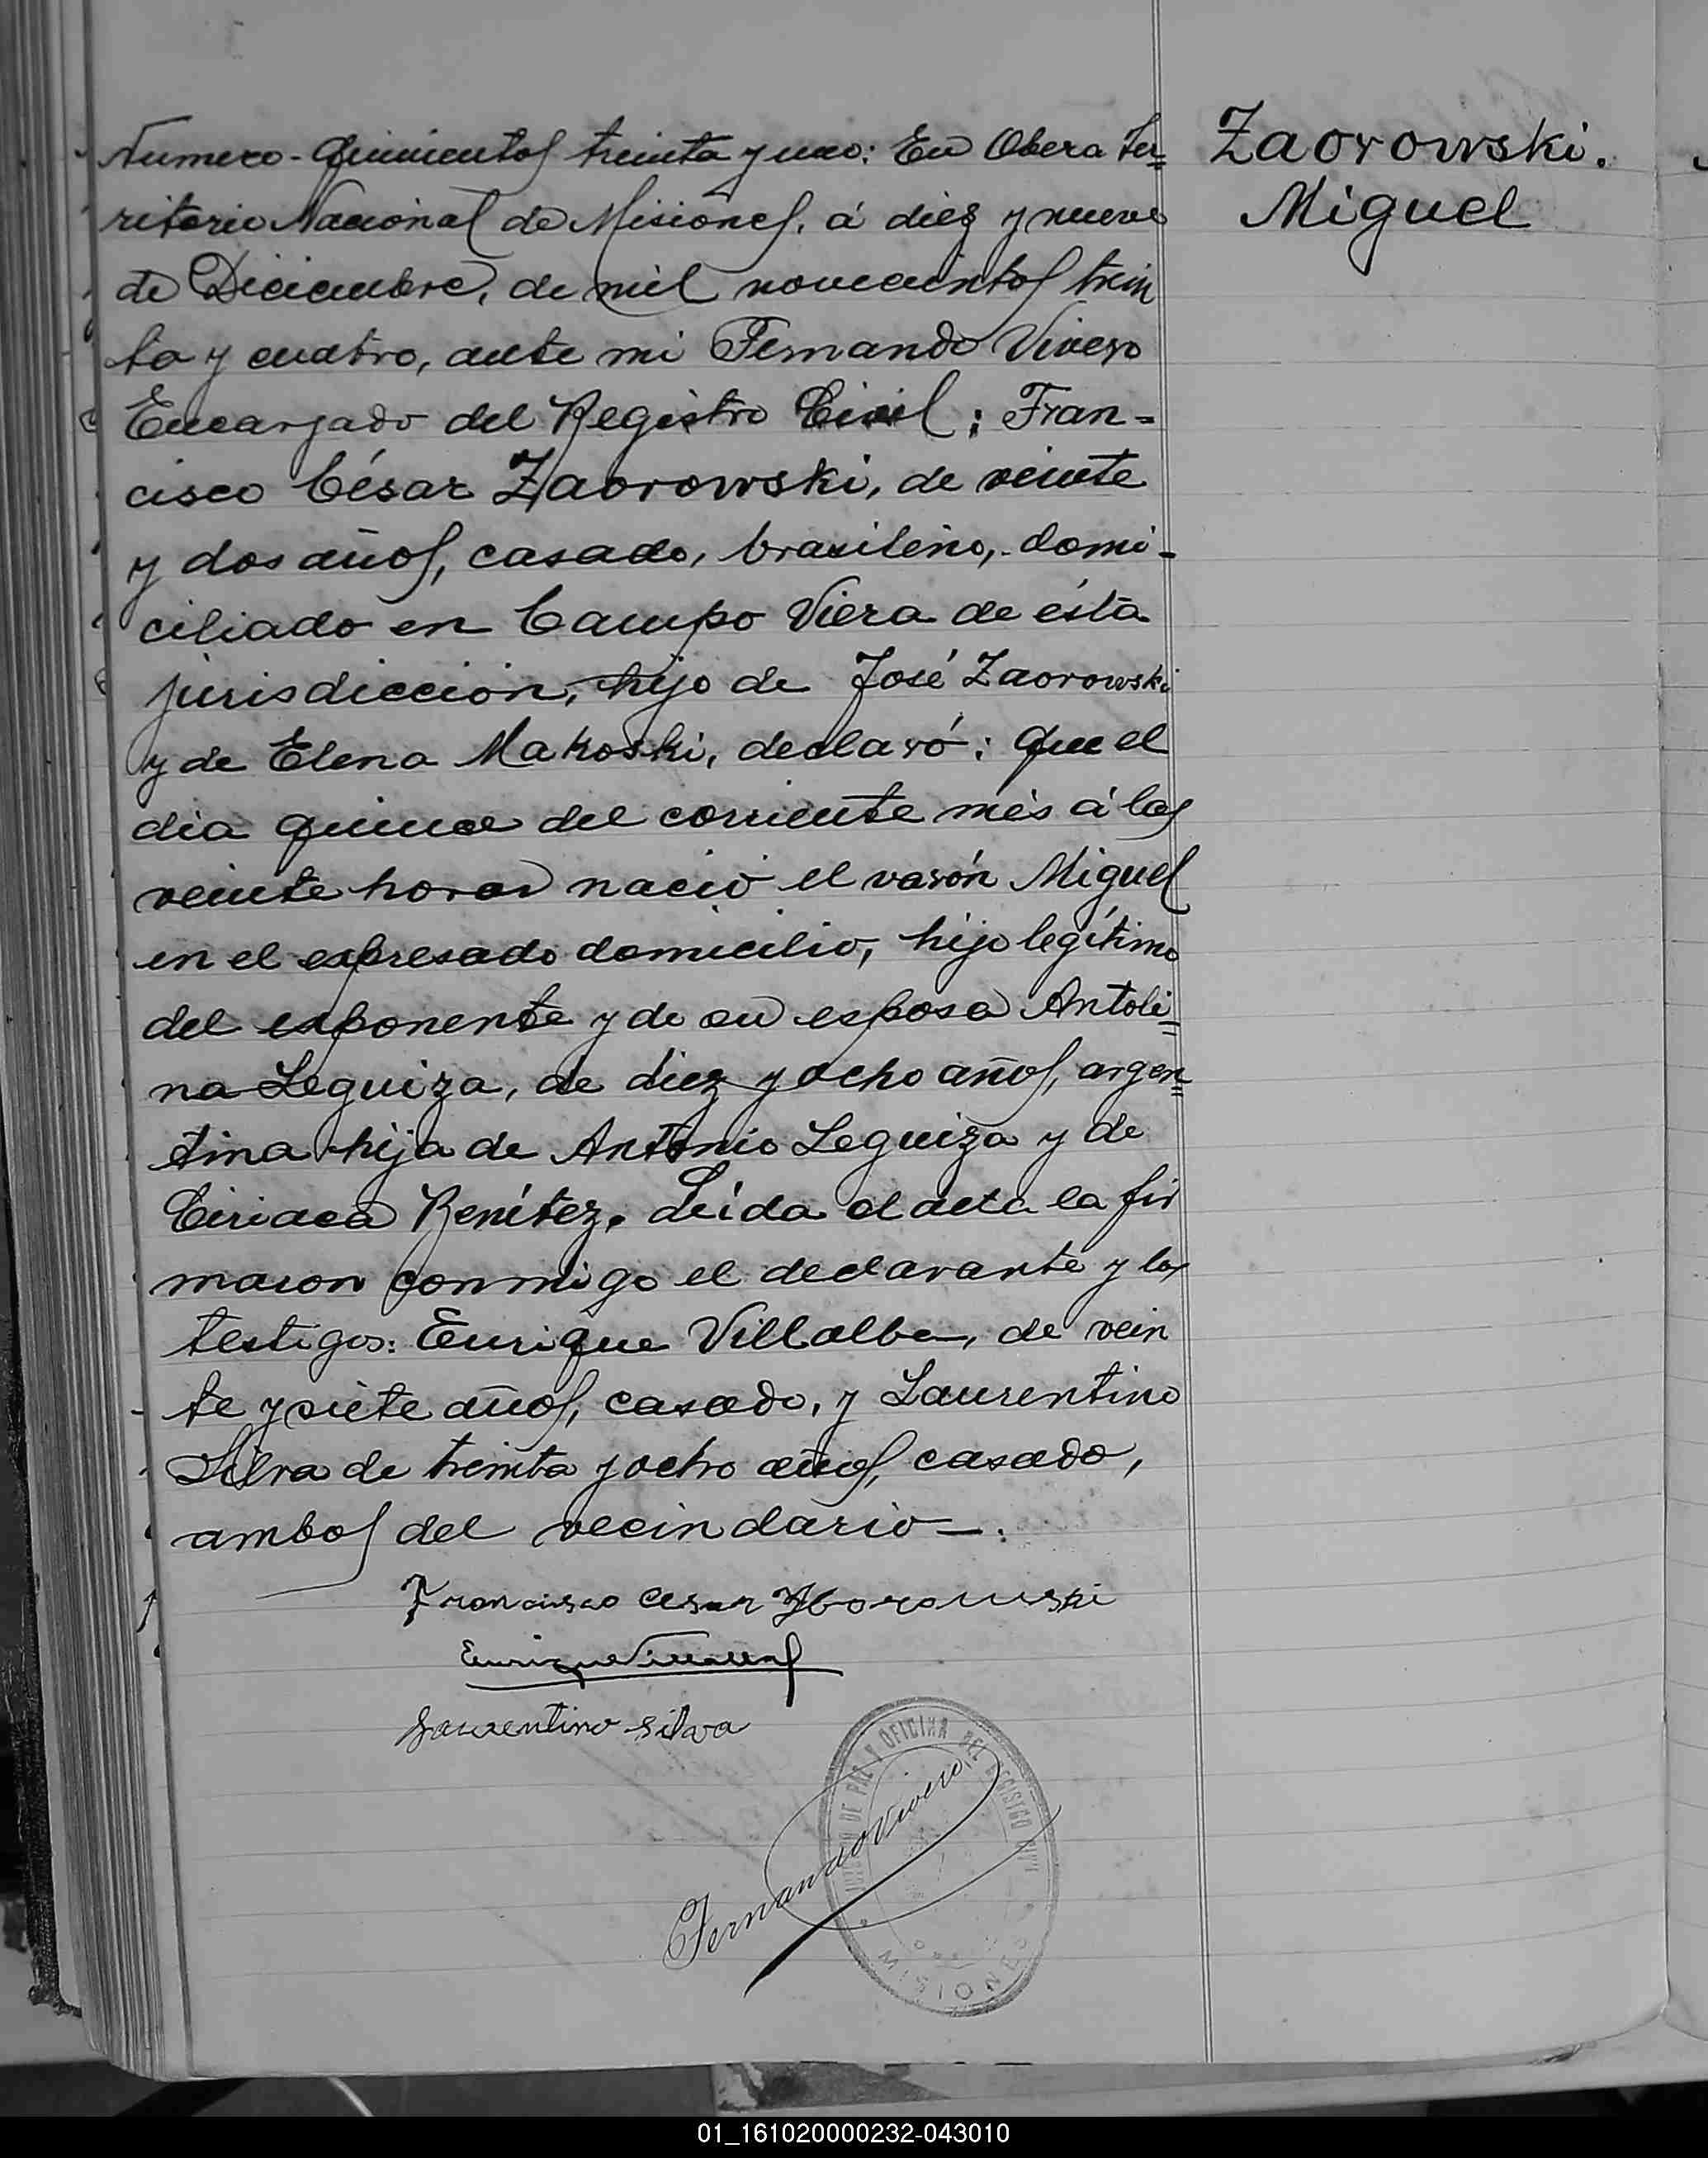 Zaorowski.
Miguel
Numero - Quinientos treinta y uno: En Obera Ter=
ritorio Nacional de Misiones, á diez y nueve
de Diciembre, de mil novecientos trein
ta y cuatro, ante mi Fernando Vivero
Encargado del Registro Civil; Fran-
cisco César Zaorowski, de veinte
y dos años, casado, brasileño, domi-
ciliado en Campo Viera de ésta
jurisdicción, hijo de José Zaorowski
y de Elena Makoski, declaró: que el
dia quince del corriente mès á las
veinte horas nació el varón Miguel
en el espresado domicilio, hijo legítimo
del esponente y de su esposa Antoli=
na Leguiza, de diez y ocho años, argen=
tina hija de Antonio Leguiza y de
Ciriaca Benítez. Leída el acta la fir
maron conmigo el declarante y los
testigos: Enrique Villalba, de vein
te y siete años, casado, y Laurentino
Silva de treinta y ocho años, casado,
ambos del vecindario—.
Francisco Cesar Zborowski
Enrique Villalba
Laurentino Silva
Fernando Vivero
JUZGADO DE PAZ Y OFICINA DEL REGISTRO CIVIL
MISIONES
01_161020000232-043010